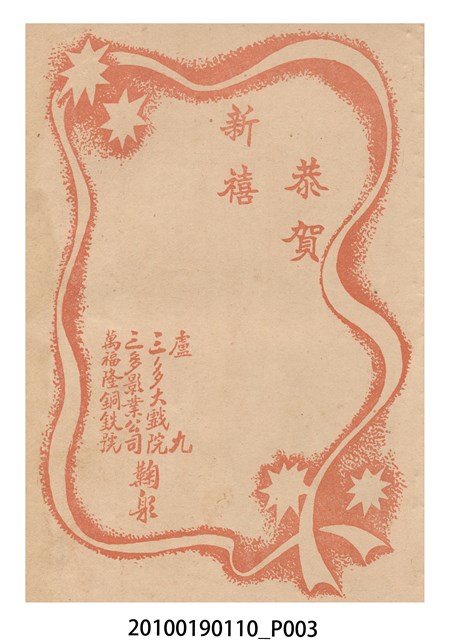 恭賀
新禧
盧九
三多大戲院
三多影業公司
萬福隆銅鉄號
鞠躬
20100190110_P003